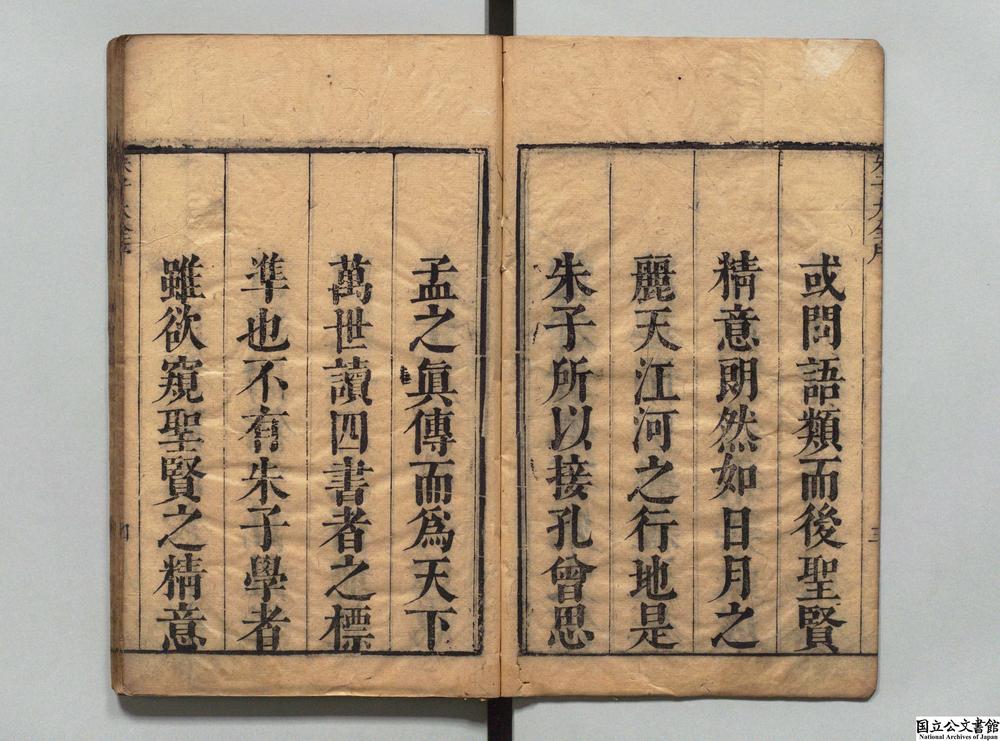 或問語類而後聖賢
精意朗然如日月之
麗天江河之行地是
朱子所以接孔曾思
孟之眞傳而爲天下
萬世讀四書者之標
準也不有朱子學者
雖欲窺聖賢之精意
国立公文書館
National Archives of Japan